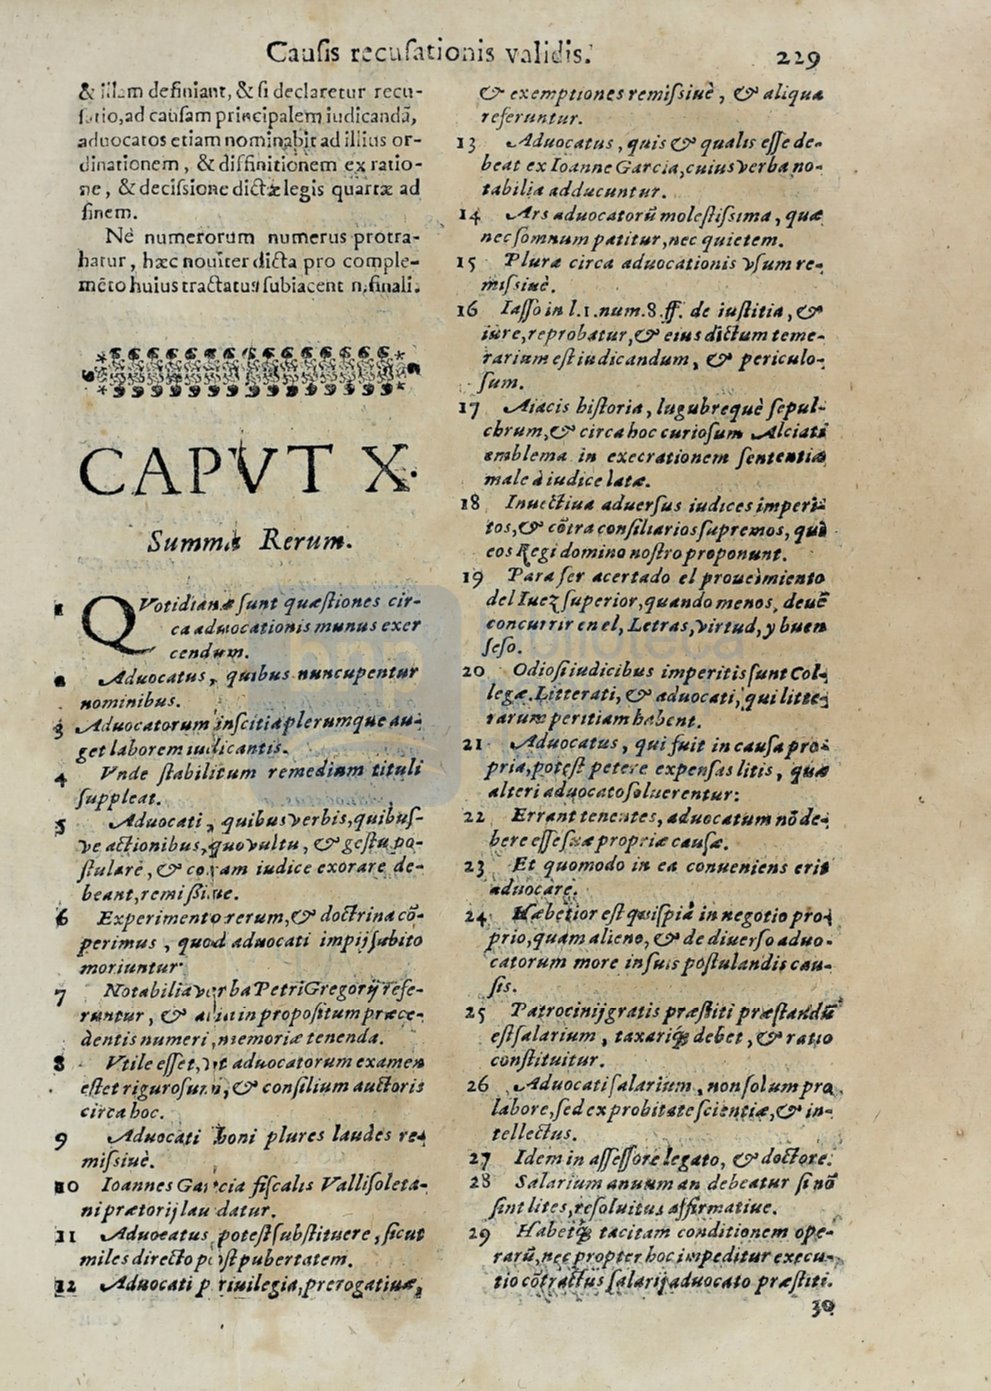 Causis recusationis validis.
229
& illam definiant, & si declaretur recu-
satio, ad causam principalem iudicandã,
aduocatos etiam nominabit ad illius or-
dinationem, & diffinitionem ex ratio-
ne, & decissione dictæ legis quartæ ad
finem.
Nè numerorum numerus protra-
hatur, hæc nouiter dicta pro comple-
mẽto huius tractatus subiacent n. finali.
CAPVT X.
Summa Rerum.
1 QVotidianæ sunt quæstiones cir-
ca aduocationis munus exer
cendum.
2 Aduocatus, quibus nuncupentur
nominibus.
3 Aduocatorum inscitia plerumque au-
get laborem iudicantis.
4 Vnde stabilitum remedium tituli
suppleat.
5 Aduocati, quibus verbis, quibus-
ve actionibus, quo vultu, & gestu po-
stulare, & coram iudice exorare de-
beant, remissiue.
6 Experimento rerum, & doctrina cõ-
perimus, quod aduocati impij subito
moriuntur
7 Notabilia verba Petri Gregorij refe-
runtur, & alia in propositum præce-
dentis numeri, memoriæ tenenda.
8 Vtile esset, vt aduocatorum examen
esset rigurosum, & consilium auctoris
circa hoc.
9 Aduocati boni plures laudes re-
missiuè.
10 Ioannes Garcia fiscalis Vallisoleta-
ni prætorij laudatur.
11 Aduocatus potest substituere, sicut
miles directo post pubertatem.
12 Aduocati priuilegia, prerogatiuæ,
& exemptiones remissiuè, & aliqua
referuntur.
13 Aduocatus, quis & qualis esse de-
beat ex Ioanne Garcia, cuius verba no-
tabilia adducuntur.
14 Ars aduocatorũ molestissima, quæ
nec somnum patitur, nec quietem.
15 Plura circa aduocationis vsum re-
missiuè.
16 Iasso in l. 1. num. 8. ff. de iustitia, &
iure, reprobatur, & eius dictum teme-
rarium est iudicandum, & periculo-
sum.
17 Aiacis historia, lugubrequè sepul-
chrum, & circa hoc curiosum Alciati
emblema in execrationem sententiæ
male à iudice latæ.
18 Inuectiua aduersus iudices imperi-
tos, & cõtra consiliarios supremos, qui
eos Regi domino nostro proponunt.
19 Para ser acertado el proueimiento
del Iuez superior, quando menos, deuẽ
concurrir en el, Letras, virtud, y buen
seso.
20 Odiosi iudicibus imperitis sunt Col-
legæ. Litterati, & aduocati, qui litte-
rarum peritiam habent.
21 Aduocatus, qui fuit in causa pro-
pria, potest petere expensas litis, quæ
alteri aduocato soluerentur:
22 Errant tenentes, aduocatum nõ de-
bere esse suæ propriæ causæ.
23 Et quomodo in ea conueniens erit
aduocare.
24 Habetior est quispiã in negotio pro-
prio, quam alieno, & de diuerso aduo-
catorum more in suis postulandis cau-
sis.
25 Patrocinij gratis præstiti præstandũ
est salarium, taxarique debet, & ratio
constituitur.
26 Aduocati salarium, non solum pro
labore, sed ex probitate scientiæ, & in-
tellectus.
27 Idem in assessore legato, & doctore.
28 Salarium anuum an debeatur si nõ
sint lites, resoluitur affirmatiue.
29 Habetque tacitam conditionem ope-
rarũ, nec propter hoc impeditur execu-
tio cõtractus salarij aduocato præstiti.
30